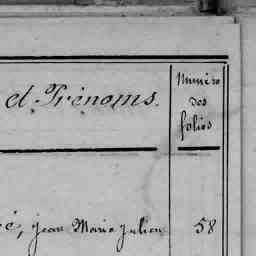 et Prénoms.
Numéro
des
folios
é, jean Marie julien 58